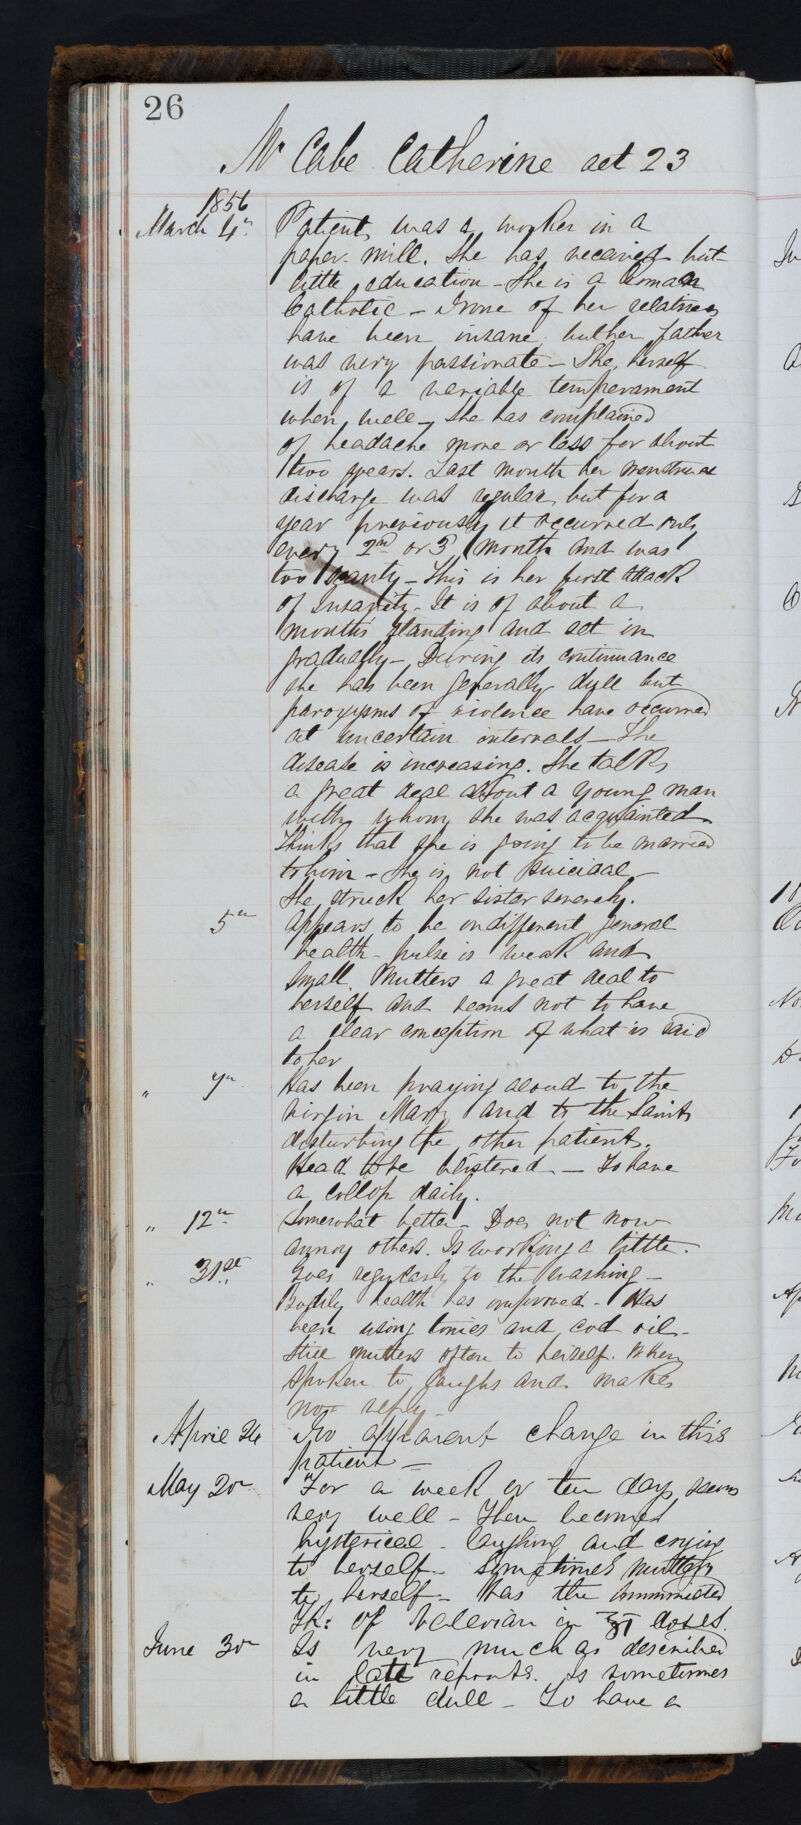 26
McCabe Catherine aet 23
1856
March 4th Patient was a worker in a
paper mill. She has received but
little education - She is a Roman
Catholic - None of her relatives
have been insane but her father
was very passionate - She herself
is of a variable temperament
when well - She has complained
of headache more or less for about
two years. Last month her menstrual
discharge was regular but for a
year previously it occurred only
every 2nd or 3d month and was
too scanty - This is her first attack
of Insanity - It is of about a
month's standing and set in
gradually - During its continuance
she has been generally dull but
paroxysms of violence have occurred
at uncertain intervals - The
disease is increasing. She talks
a great deal about a young man
with whom she was acquainted
Thinks that she is going to be married
to him - She is not suicidal -
She struck her sister severely.
5th Appears to be in different general
health - pulse is weak and
small Mutters a great deal to
herself and seems not to have
a clear conception of what is said
to her
" 7th Has been praying aloud to the
Virgin Mary and to the Saints
disturbing the other patients.
Head to be blistered - To have
a collop daily.
" 12th Somewhat better - Does not now
annoy others. Is working a little.
" 31st Goes regularly to the washing -
Bodily health has improved - Has
been using tonics and cod oil -
Still mutters often to herself. When
spoken to laughs and makes
no reply
April 24 No apparent change in this
patient -
May 20th For a week or ten days seems
very well - Then becomes
hysterical - laughing and crying
to herself - Sometimes mutters
to herself - Has the ammoniated
Tr: of Valerian in ʒi doses.
June 30th Is very much as described
in last reports. Is sometimes
a little dull - To have a